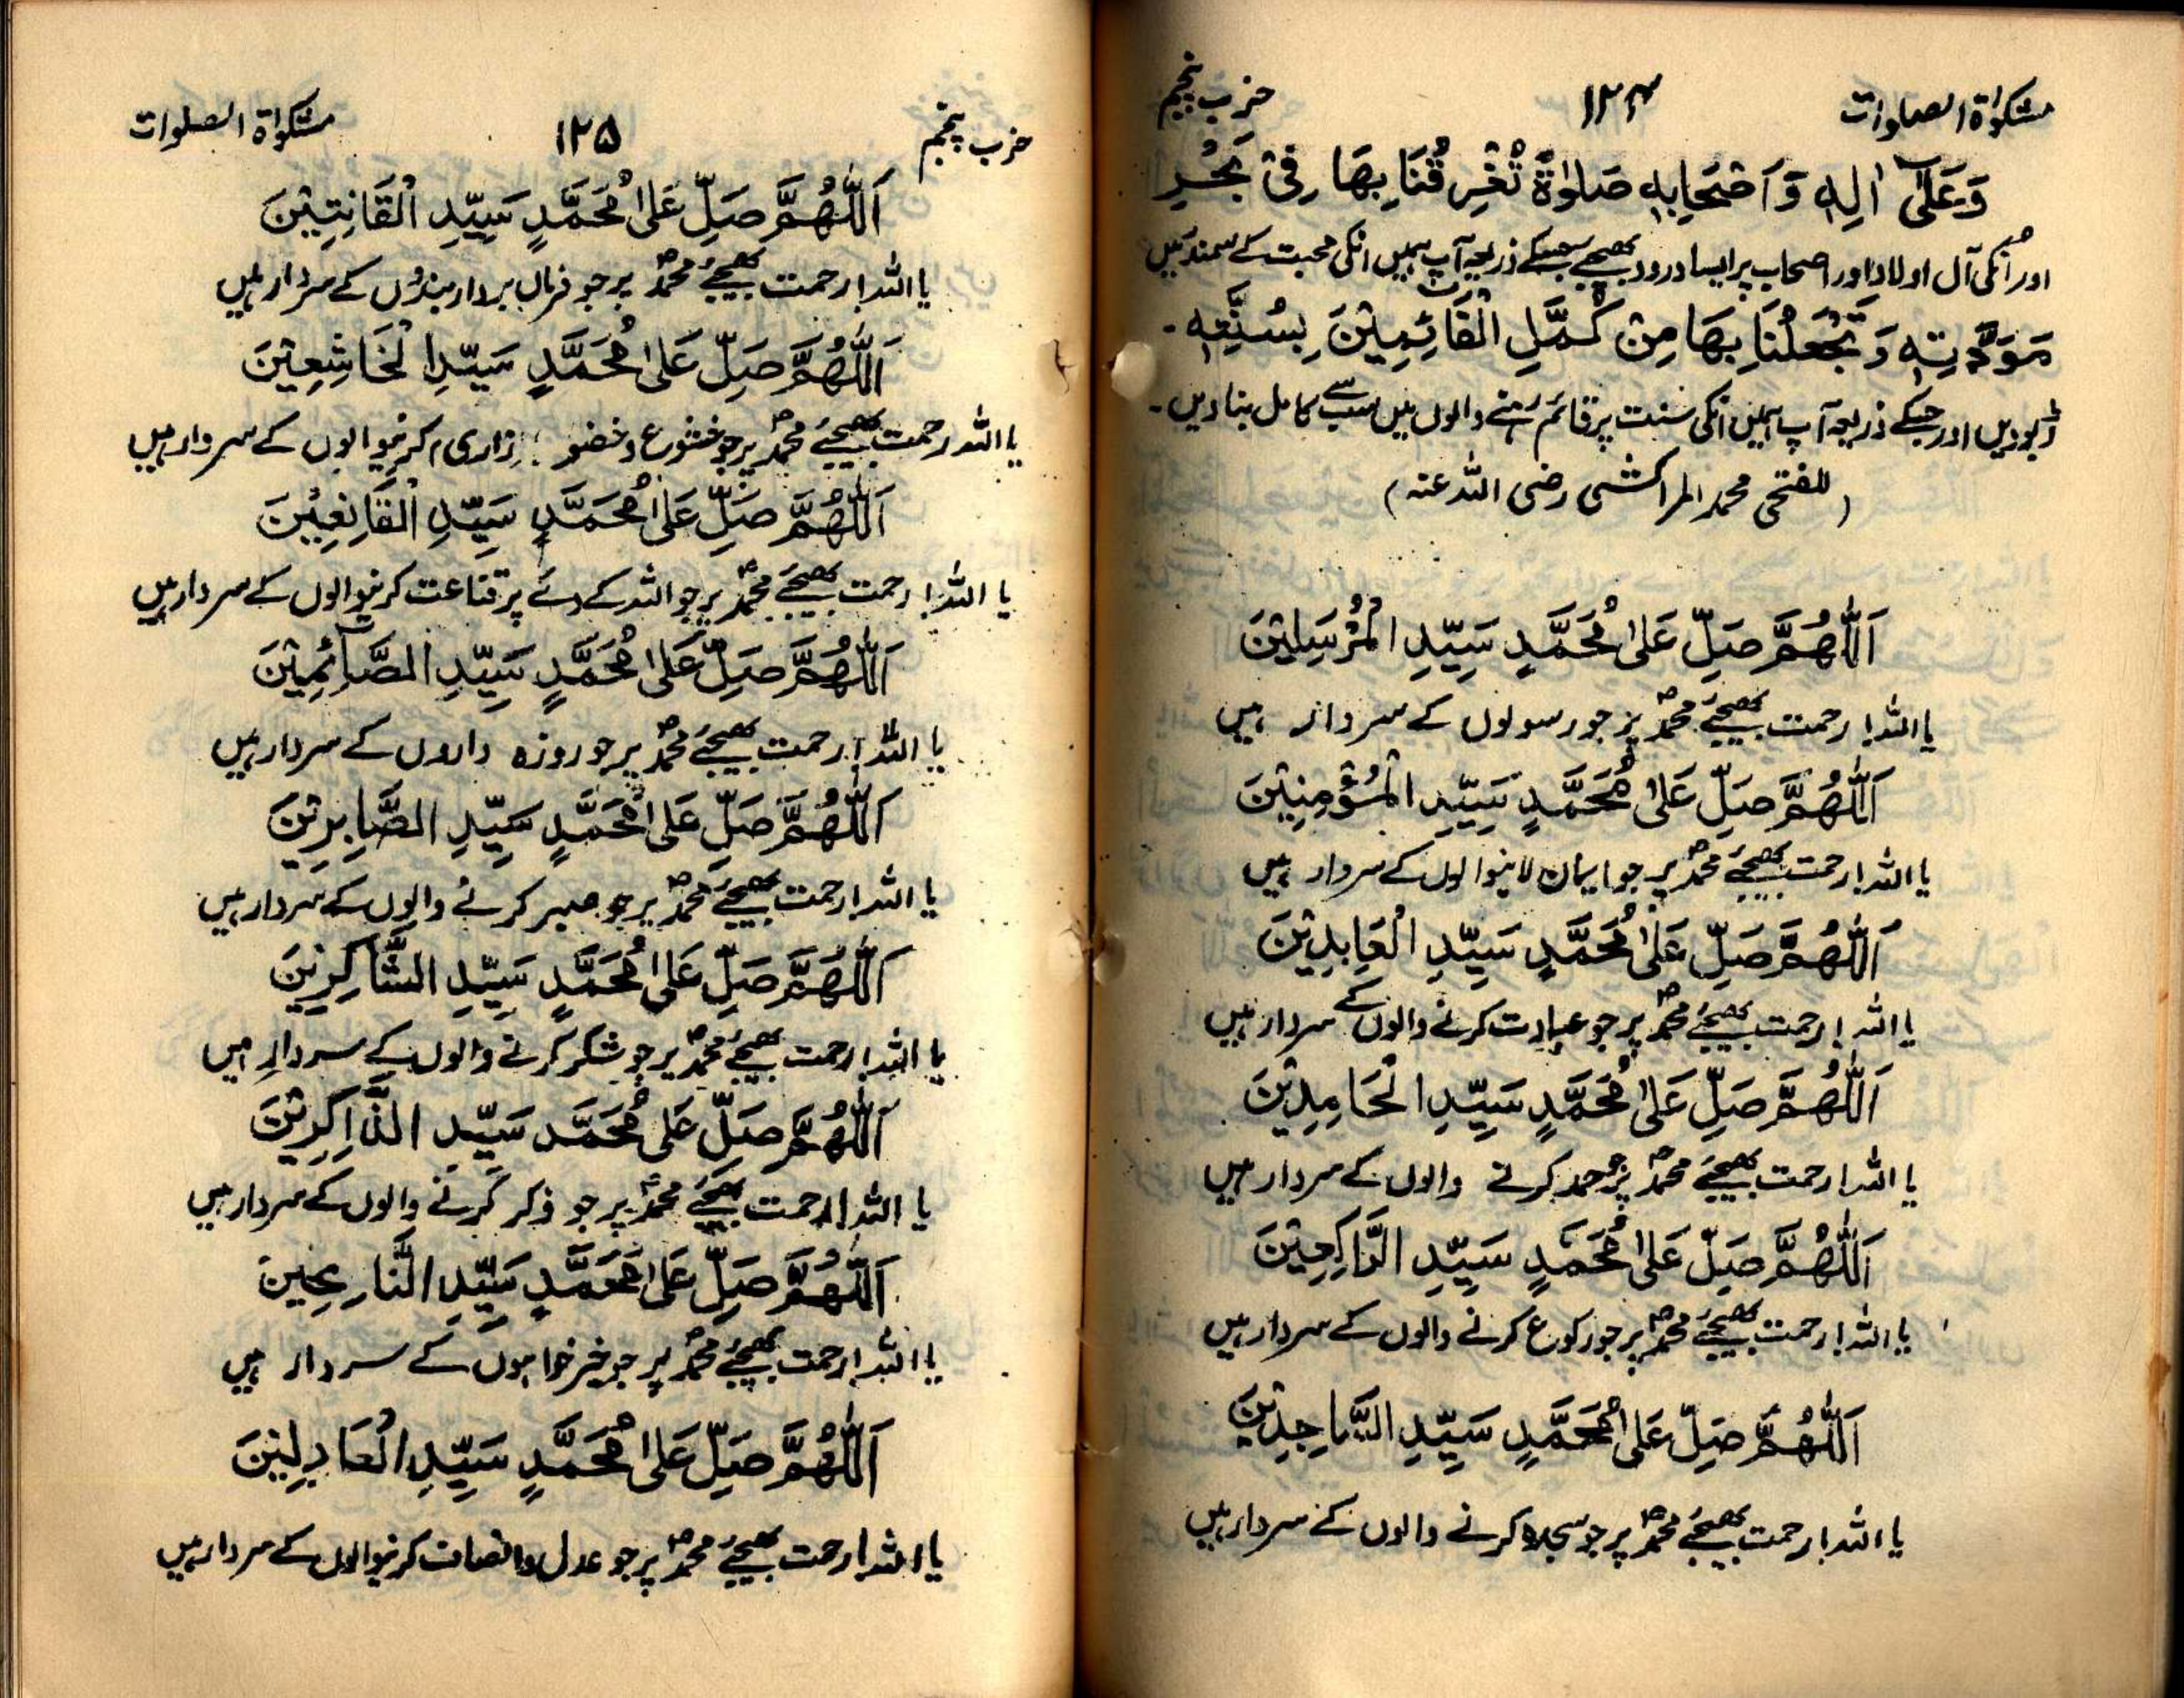 مشکوٰة الصلوات ۱۲۴ حزب پنجم
وَعَلٰى اٰلِهٖ وَاَصْحَابِهٖ صَلٰوةً تُغْرِقُنَا بِهَا فِىْ بَحْرِ
اور اُنکی آل اولاد اور اصحاب پر ایسا درود بھیجئے جسکے ذریعہ آپ ہمیں انکی محبت کے سمندر میں
مَوَدَّتِهٖ وَتَجْعَلُنَا بِهَا مِنْ كُمَّلِ الْقَائِمِيْنَ بِسُنَّتِهٖ۔
ڈبودیں اور جسکے ذریعہ آپ ہمیں انکی سنت پر قائم رہنے والوں میں سب سے کامل بنادیں۔
(للفتحی محمد المراکشی رضی اللہ عنہ)
اَللّٰهُمَّ صَلِّ عَلٰى مُحَمَّدٍ سَيِّدِ الْمُرْسَلِيْنَ
یا اللہ! رحمت بھیجئے محمدؐ پر جو رسولوں کے سردار ہیں
اَللّٰهُمَّ صَلِّ عَلٰى مُحَمَّدٍ سَيِّدِ الْمُؤْمِنِيْنَ
یا اللہ! رحمت بھیجئے محمدؐ پر جو ایمان لانیوالوں کے سردار ہیں
اَللّٰهُمَّ صَلِّ عَلٰى مُحَمَّدٍ سَيِّدِ الْعَابِدِيْنَ
یا اللہ! رحمت بھیجئے محمدؐ پر جو عبادت کرنے والوں کے سردار ہیں
اَللّٰهُمَّ صَلِّ عَلٰى مُحَمَّدٍ سَيِّدِ الْحَامِدِيْنَ
یا اللہ! رحمت بھیجئے محمدؐ پر جو حمد کرنے والوں کے سردار ہیں
اَللّٰهُمَّ صَلِّ عَلٰى مُحَمَّدٍ سَيِّدِ الرَّاكِعِيْنَ
یا اللہ! رحمت بھیجئے محمدؐ پر جو رکوع کرنے والوں کے سردار ہیں
اَللّٰهُمَّ صَلِّ عَلٰى مُحَمَّدٍ سَيِّدِ السَّاجِدِيْنَ
یا اللہ! رحمت بھیجئے محمدؐ پر جو سجدہ کرنے والوں کے سردار ہیں
حزب پنجم ۱۲۵ مشکوٰة الصلوات
اَللّٰهُمَّ صَلِّ عَلٰى مُحَمَّدٍ سَيِّدِ الْقَانِتِيْنَ
یا اللہ! رحمت بھیجئے محمدؐ پر جو فرماں بردار بندوں کے سردار ہیں
اَللّٰهُمَّ صَلِّ عَلٰى مُحَمَّدٍ سَيِّدِ الْخَاشِعِيْنَ
یا اللہ رحمت بھیجئے محمدؐ پر جو خشوع و خضو زاری کرنیوالوں کے سردار ہیں
اَللّٰهُمَّ صَلِّ عَلٰى مُحَمَّدٍ سَيِّدِ الْقَانِعِيْنَ
یا اللہ! رحمت بھیجئے محمدؐ پر جو اللہ کے دئے پر قناعت کرنیوالوں کے سردار ہیں
اَللّٰهُمَّ صَلِّ عَلٰى مُحَمَّدٍ سَيِّدِ الصَّآئِمِيْنَ
یا اللہ! رحمت بھیجئے محمدؐ پر جو روزہ داروں کے سردار ہیں
اَللّٰهُمَّ صَلِّ عَلٰى مُحَمَّدٍ سَيِّدِ الصَّابِرِيْنَ
یا اللہ! رحمت بھیجئے محمدؐ پر جو صبر کرنے والوں کے سردار ہیں
اَللّٰهُمَّ صَلِّ عَلٰى مُحَمَّدٍ سَيِّدِ الشَّاكِرِيْنَ
یا اللہ! رحمت بھیجئے محمدؐ پر جو شکر کرنے والوں کے سردار ہیں
اَللّٰهُمَّ صَلِّ عَلٰى مُحَمَّد سَيِّدِ الذَّاكِرِيْنَ
یا اللہ! رحمت بھیجئے محمدؐ پر جو ذکر کرنے والوں کے سردار ہیں
اَللّٰهُمَّ صَلِّ عَلٰى مُحَمَّدٍ سَيِّدِ النَّاصِحِيْنَ
یا اللہ! رحمت بھیجئے محمدؐ پر جو خیر خواہوں کے سردار ہیں
اَللّٰهُمَّ صَلِّ عَلٰى مُحَمَّدٍ سَيِّدِ الْعَادِلِيْنَ
یا اللہ! رحمت بھیجئے محمدؐ پر جو عدل وانصاف کرنیوالوں کے سردار ہیں